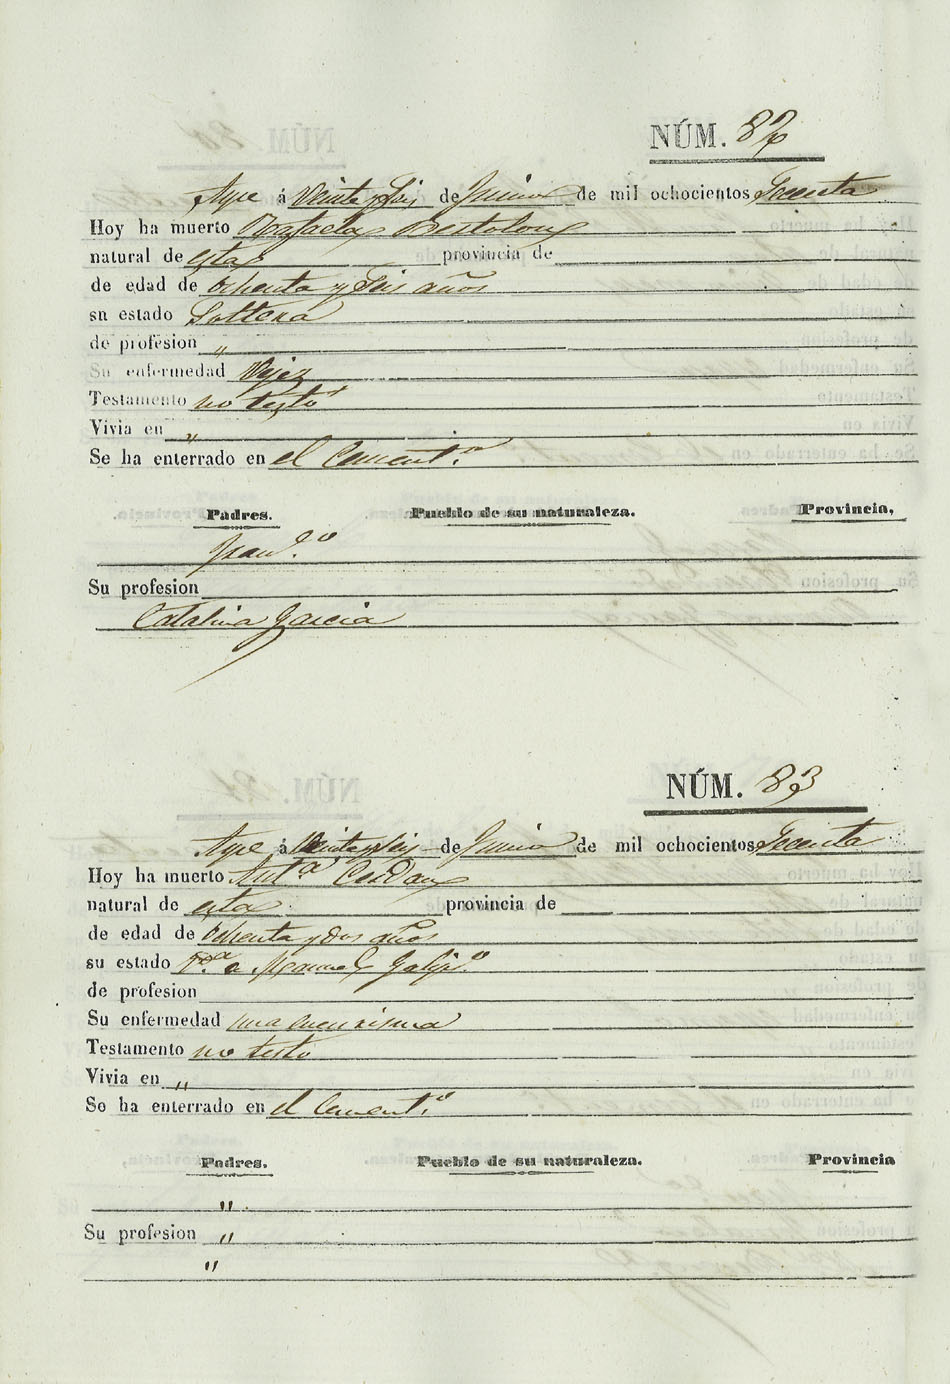 NÚM. 82
Aspe á Veinte y Seis de Junio de mil ochocientos Secenta
Hoy ha muerto Rafaela
natural de esta provincia de
de edad de Ochenta y Seis años
su estado Soltera
de profesion "
Su enfermedad Vejez
Testamento no testó
Vivia en "
Se ha enterrado en el Cement.º
Padres. Pueblo de su naturaleza. Provincia,
Fran.co
Su profesion
Catalina Garcia
NÚM. 83
Aspe á Veinte y Seis de Junio de mil ochocientos Secenta
Hoy ha muerto Ant.ª
natural de esta provincia de
de edad de Ochenta y dos años
su estado a Manuel
de profesion
Su enfermedad una
Testamento no testó
Vivia en "
Se ha enterrado en el Cement.º
Padres. Pueblo de su naturaleza. Provincia
"
Su profesion "
"